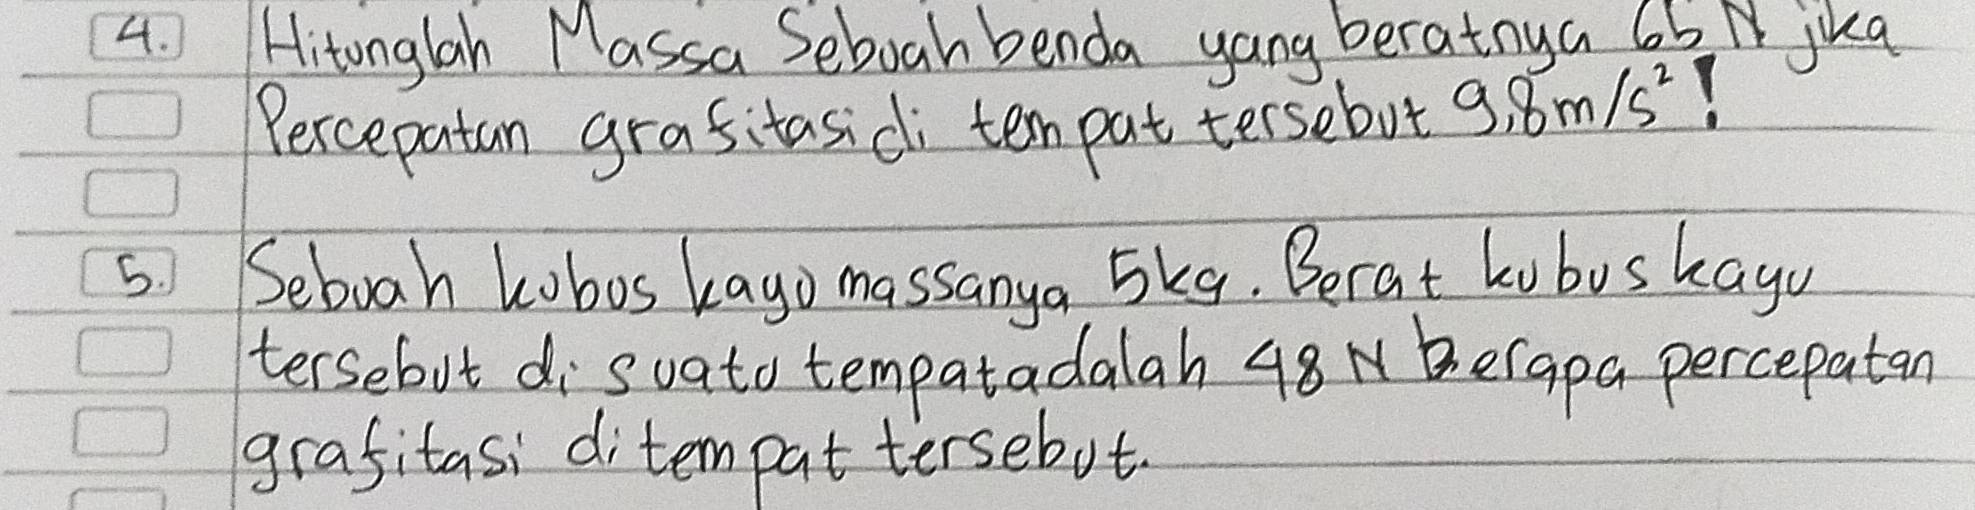 4. Hitunglah Massa Sebuah benda yang beratnya 65 N jika
Percepatan grafitasi di tempat tersebut 9,8 m/s² !
5. Sebuah kubus kayu massanya 5kg. Berat kubus kayu
tersebut di suatu tempat adalah 48 N berapa percepatan
grafitasi di tempat tersebut.